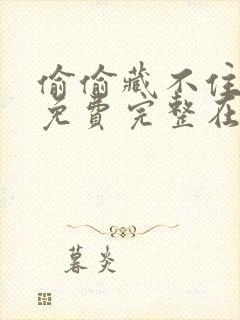 偷偷藏不住
免费完整在
暮炎